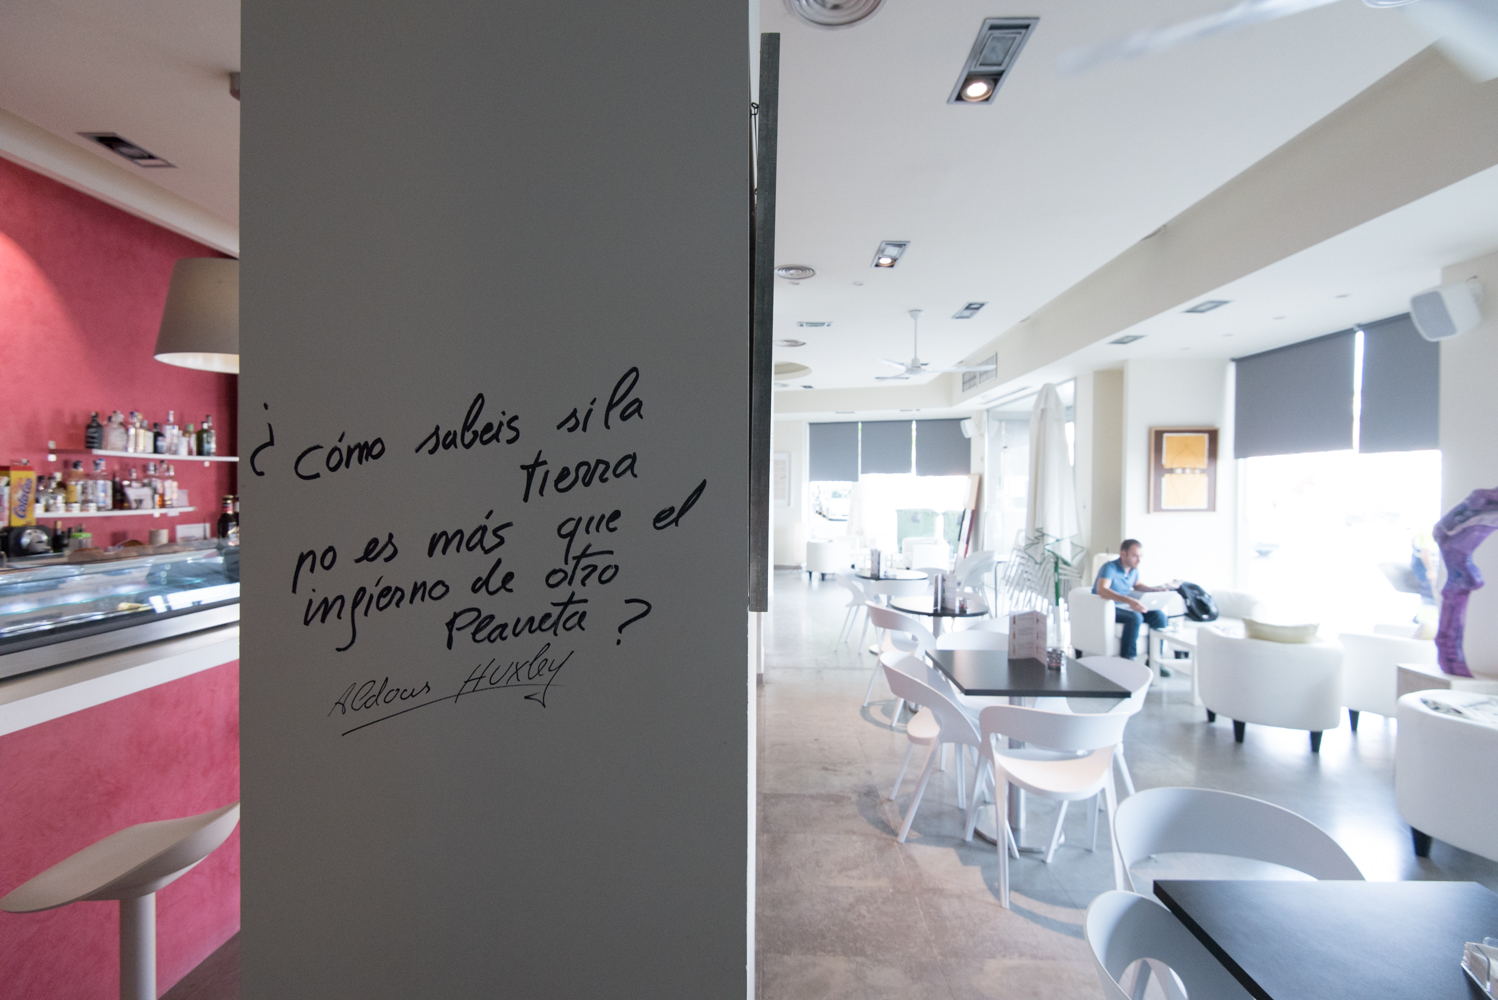 ¿ cómo sabeis si la
tierra
no es más que el
infierno de otro
Planeta ?
Aldous Huxley
ColaCao